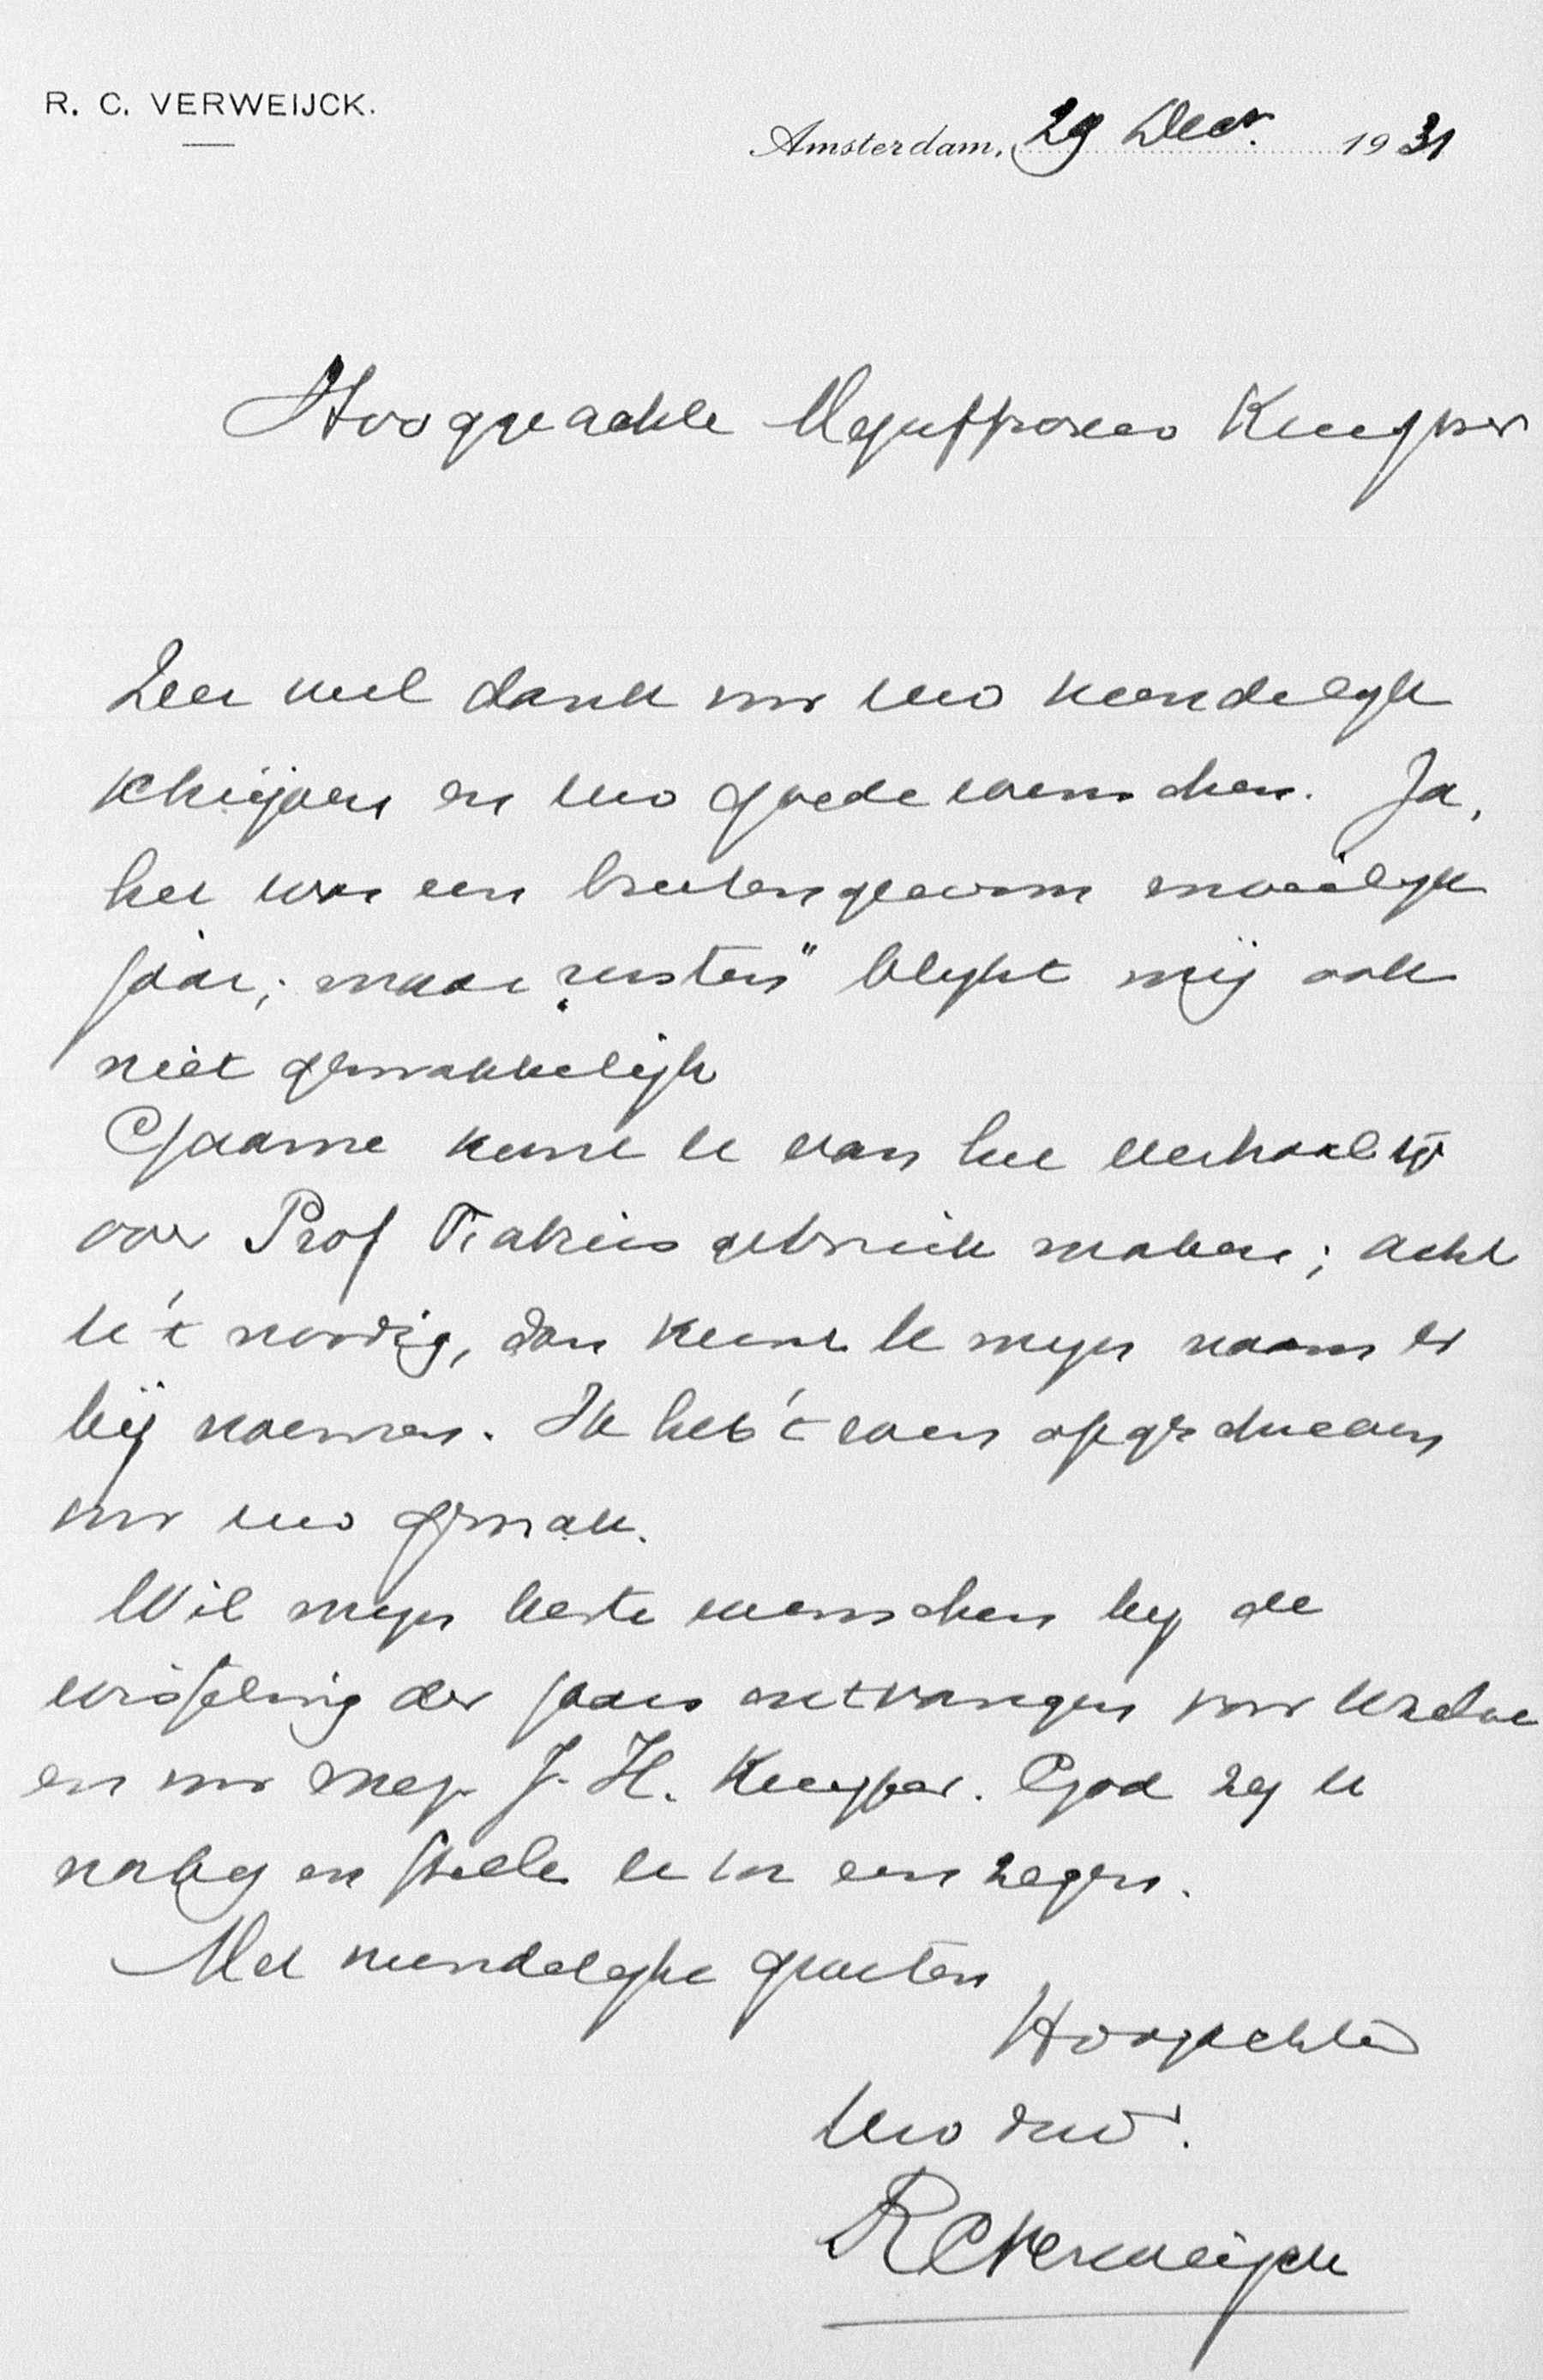 R. C. VERWEIJCK.
Amsterdam, 29 Decr. 1931
Hooggeachte Mejuffrouw Kuyper
Zeer veel dank voor uw vriendelyk
schrijven en uw goede wenschen. Ja,
het was een buitengewoon moeilyk
jaar; maar „rusten" blykt mij ook
niet gemakkelijk
Gaarne kunt U van het verhaaltje
over Prof Fabius gebruik maken; acht
U 't noodig, dan kunt U myn naam er
bij noemen. Ik heb 't even opgeschreven
voor uw gemak.
Wil myn beste wenschen by de
wisseling der jaren ontvangen voor Uzelve
en voor mej. J. H. Kuyper. God zy U
naby en stelle U tot een zegen.
Met vriendelyke groeten
Hoogachtend
Uw dw.
RCVerweijck